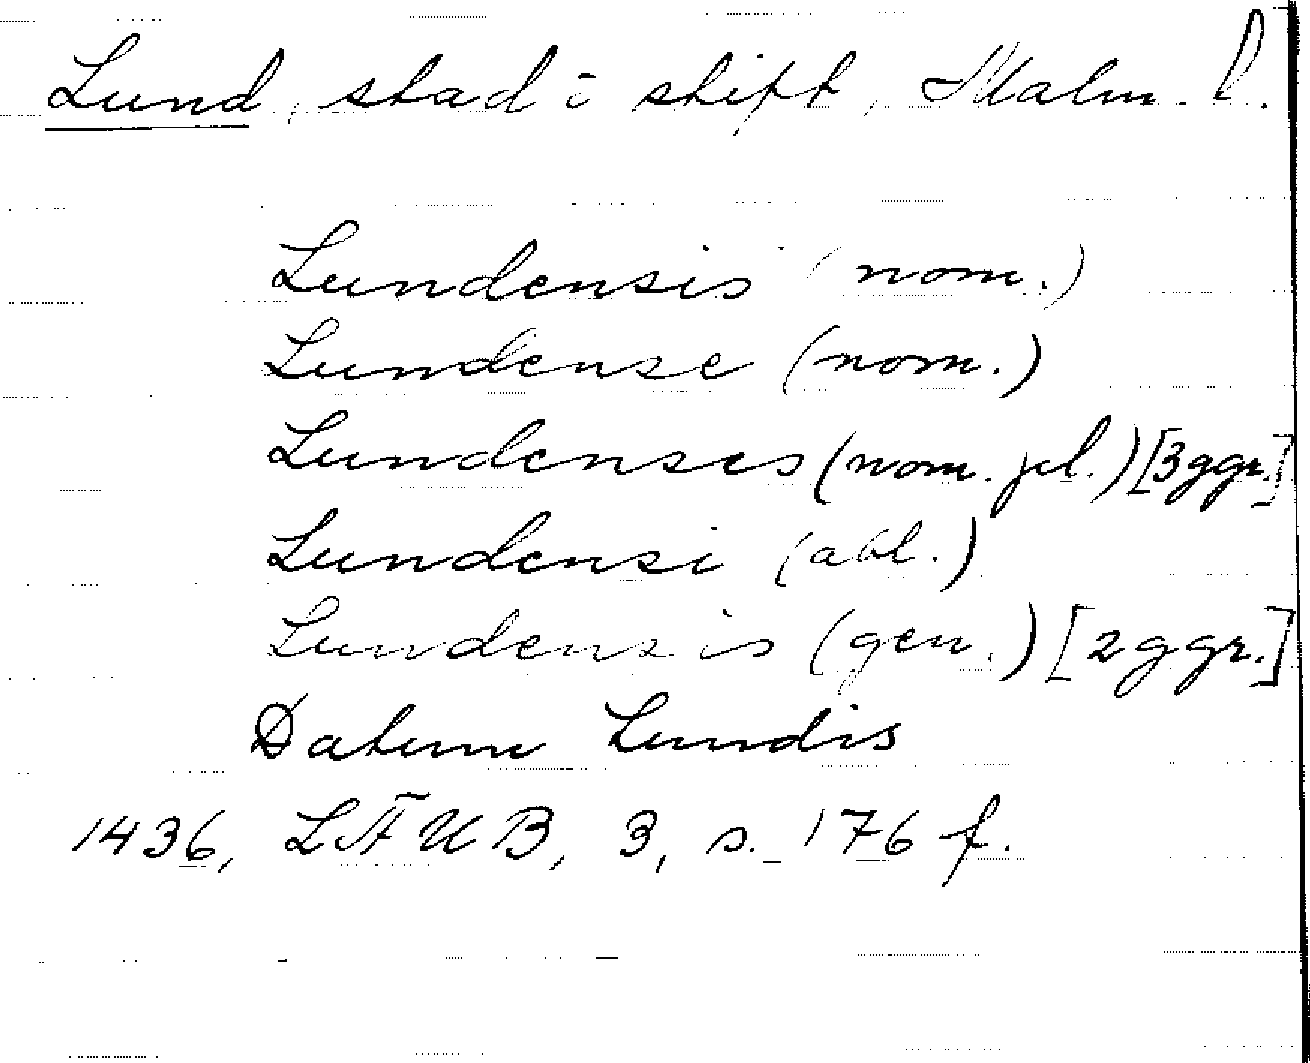 Lund, stad o stift, Malm. l.
Lundensis (nom.)
Lundense (nom.)
Lundenses (nom. pl.) [3 ggr.]
Lundensi (abl.)
Lundensis (gen.) [2 ggr.]
Datum Lundis
1436, LÄUB, 3, s. 176 f.